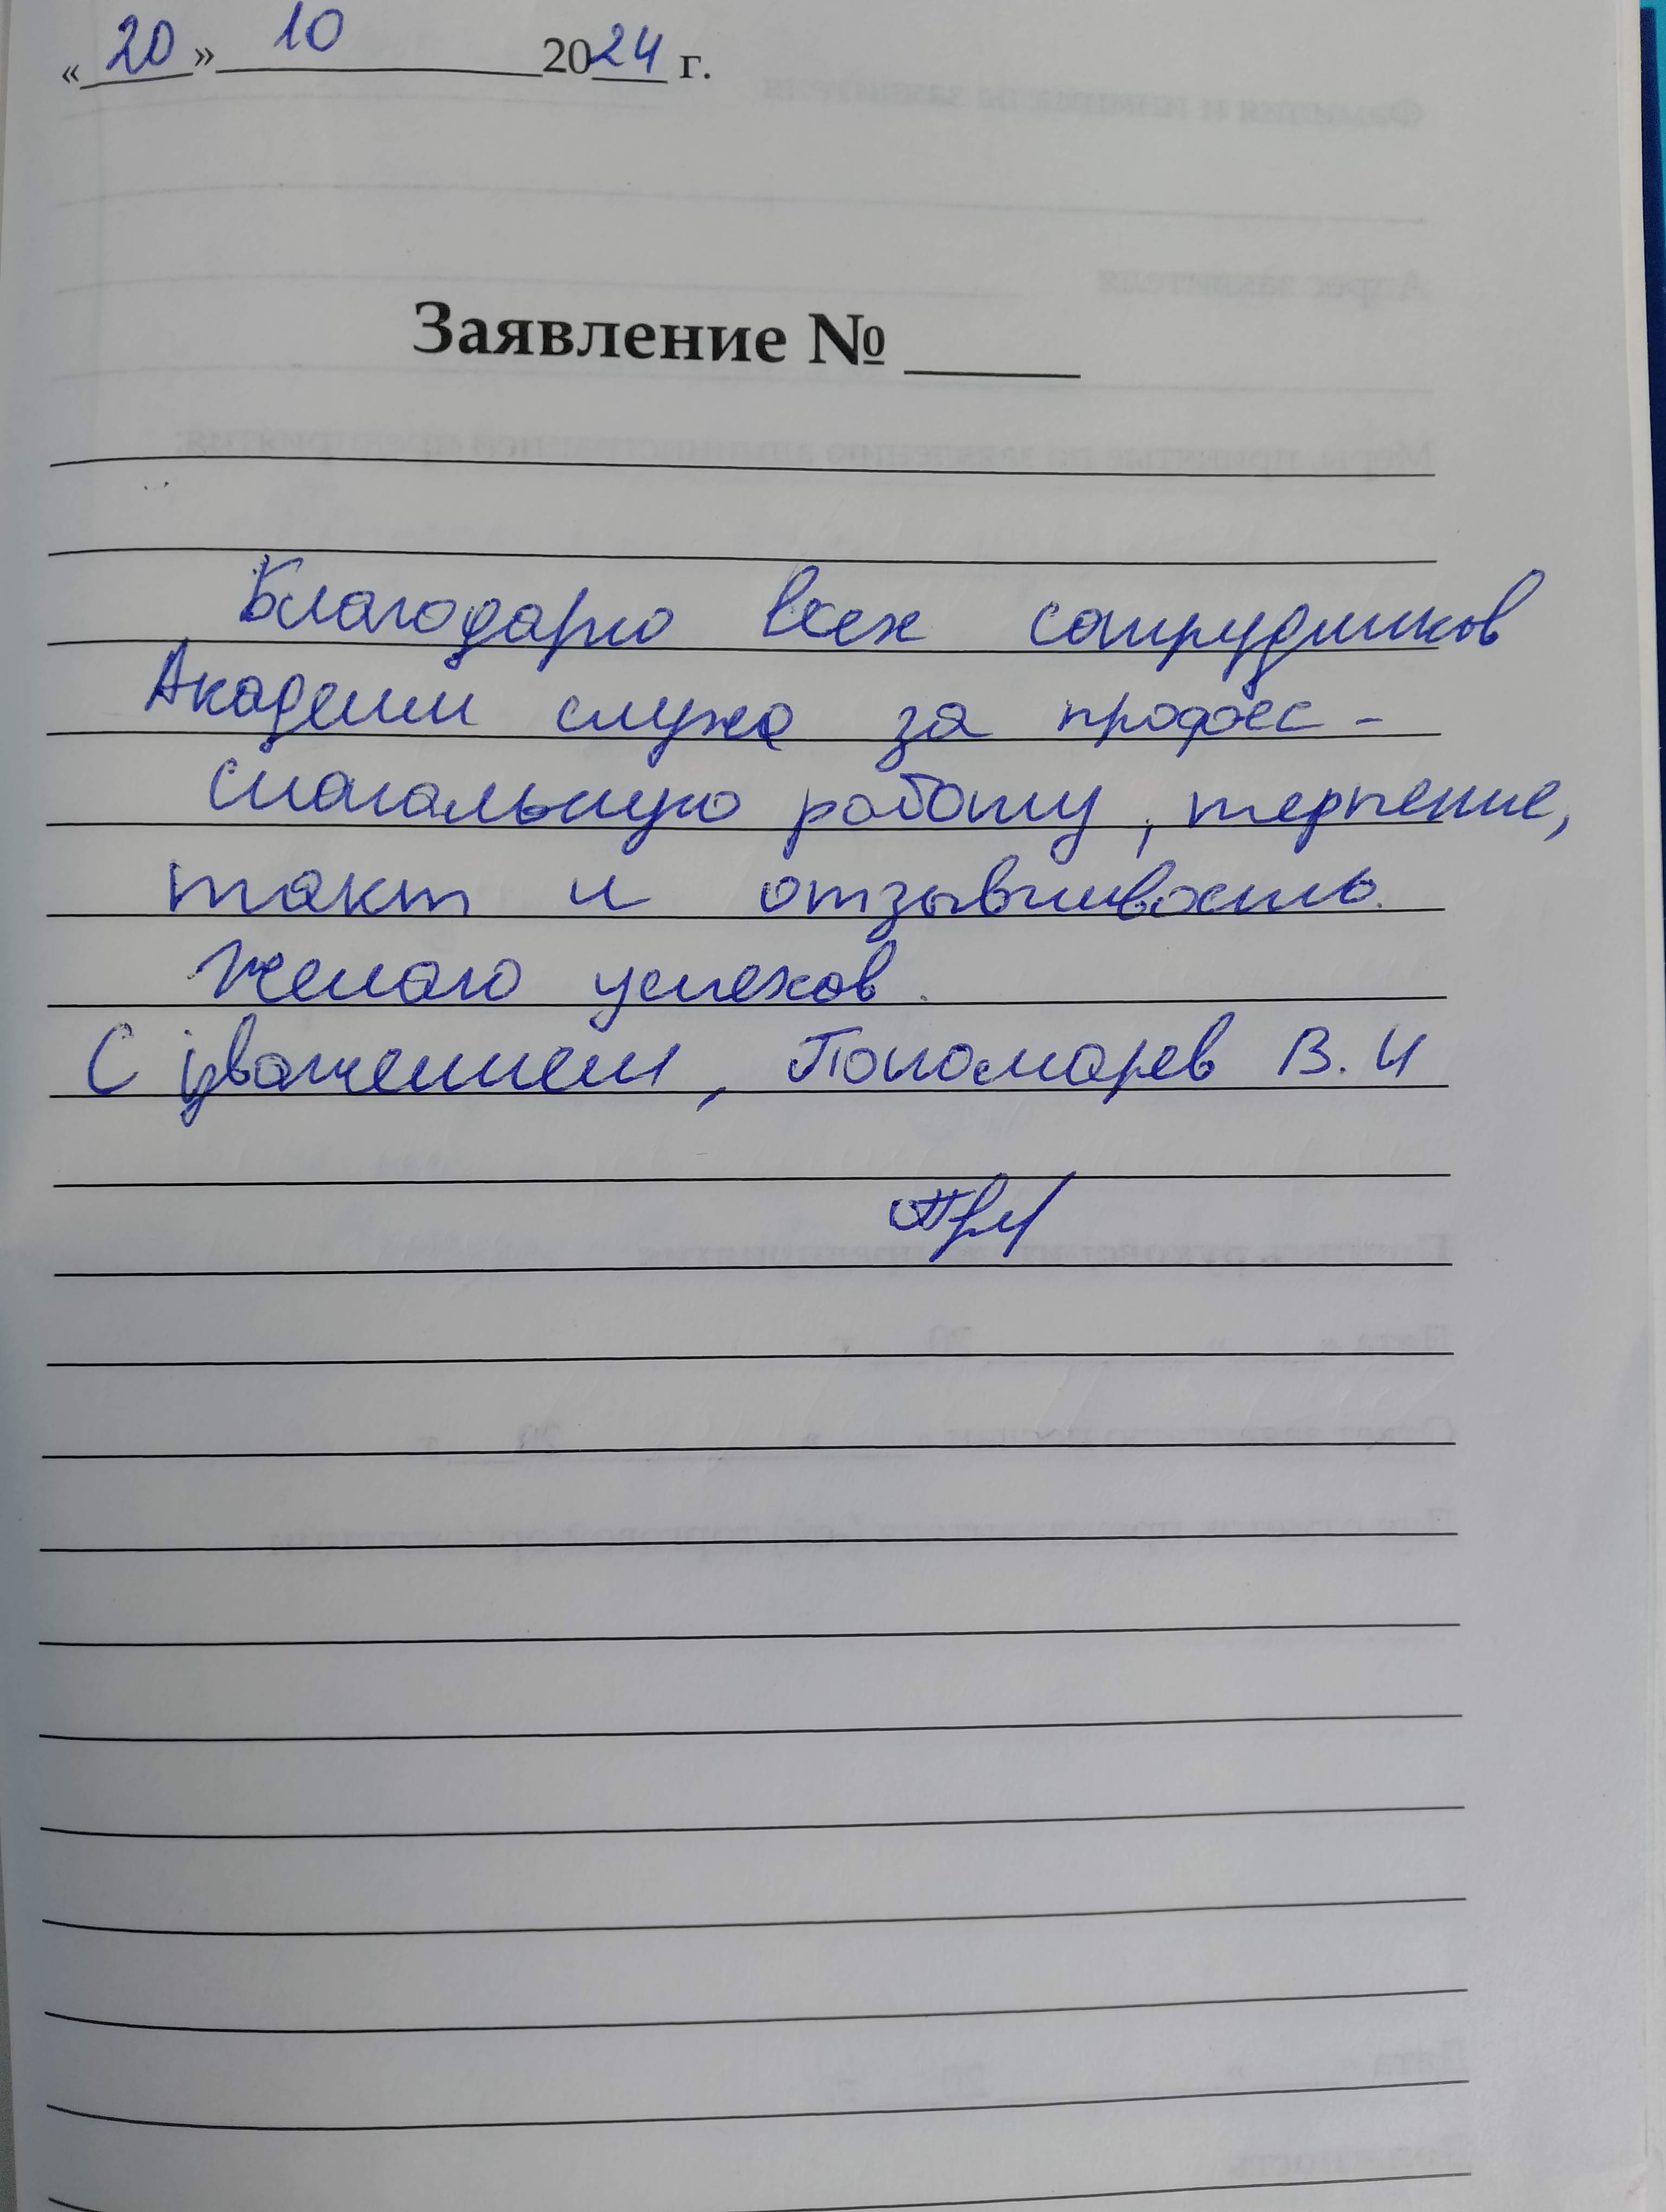 «20» 10 2024 г.
Заявление № ____
Благодарю всех сотрудников
Академии слуха за профес-
сиональную работу, терпение,
такт и отзывчивость.
Желаю успехов.
С уважением, Пономарев В. И